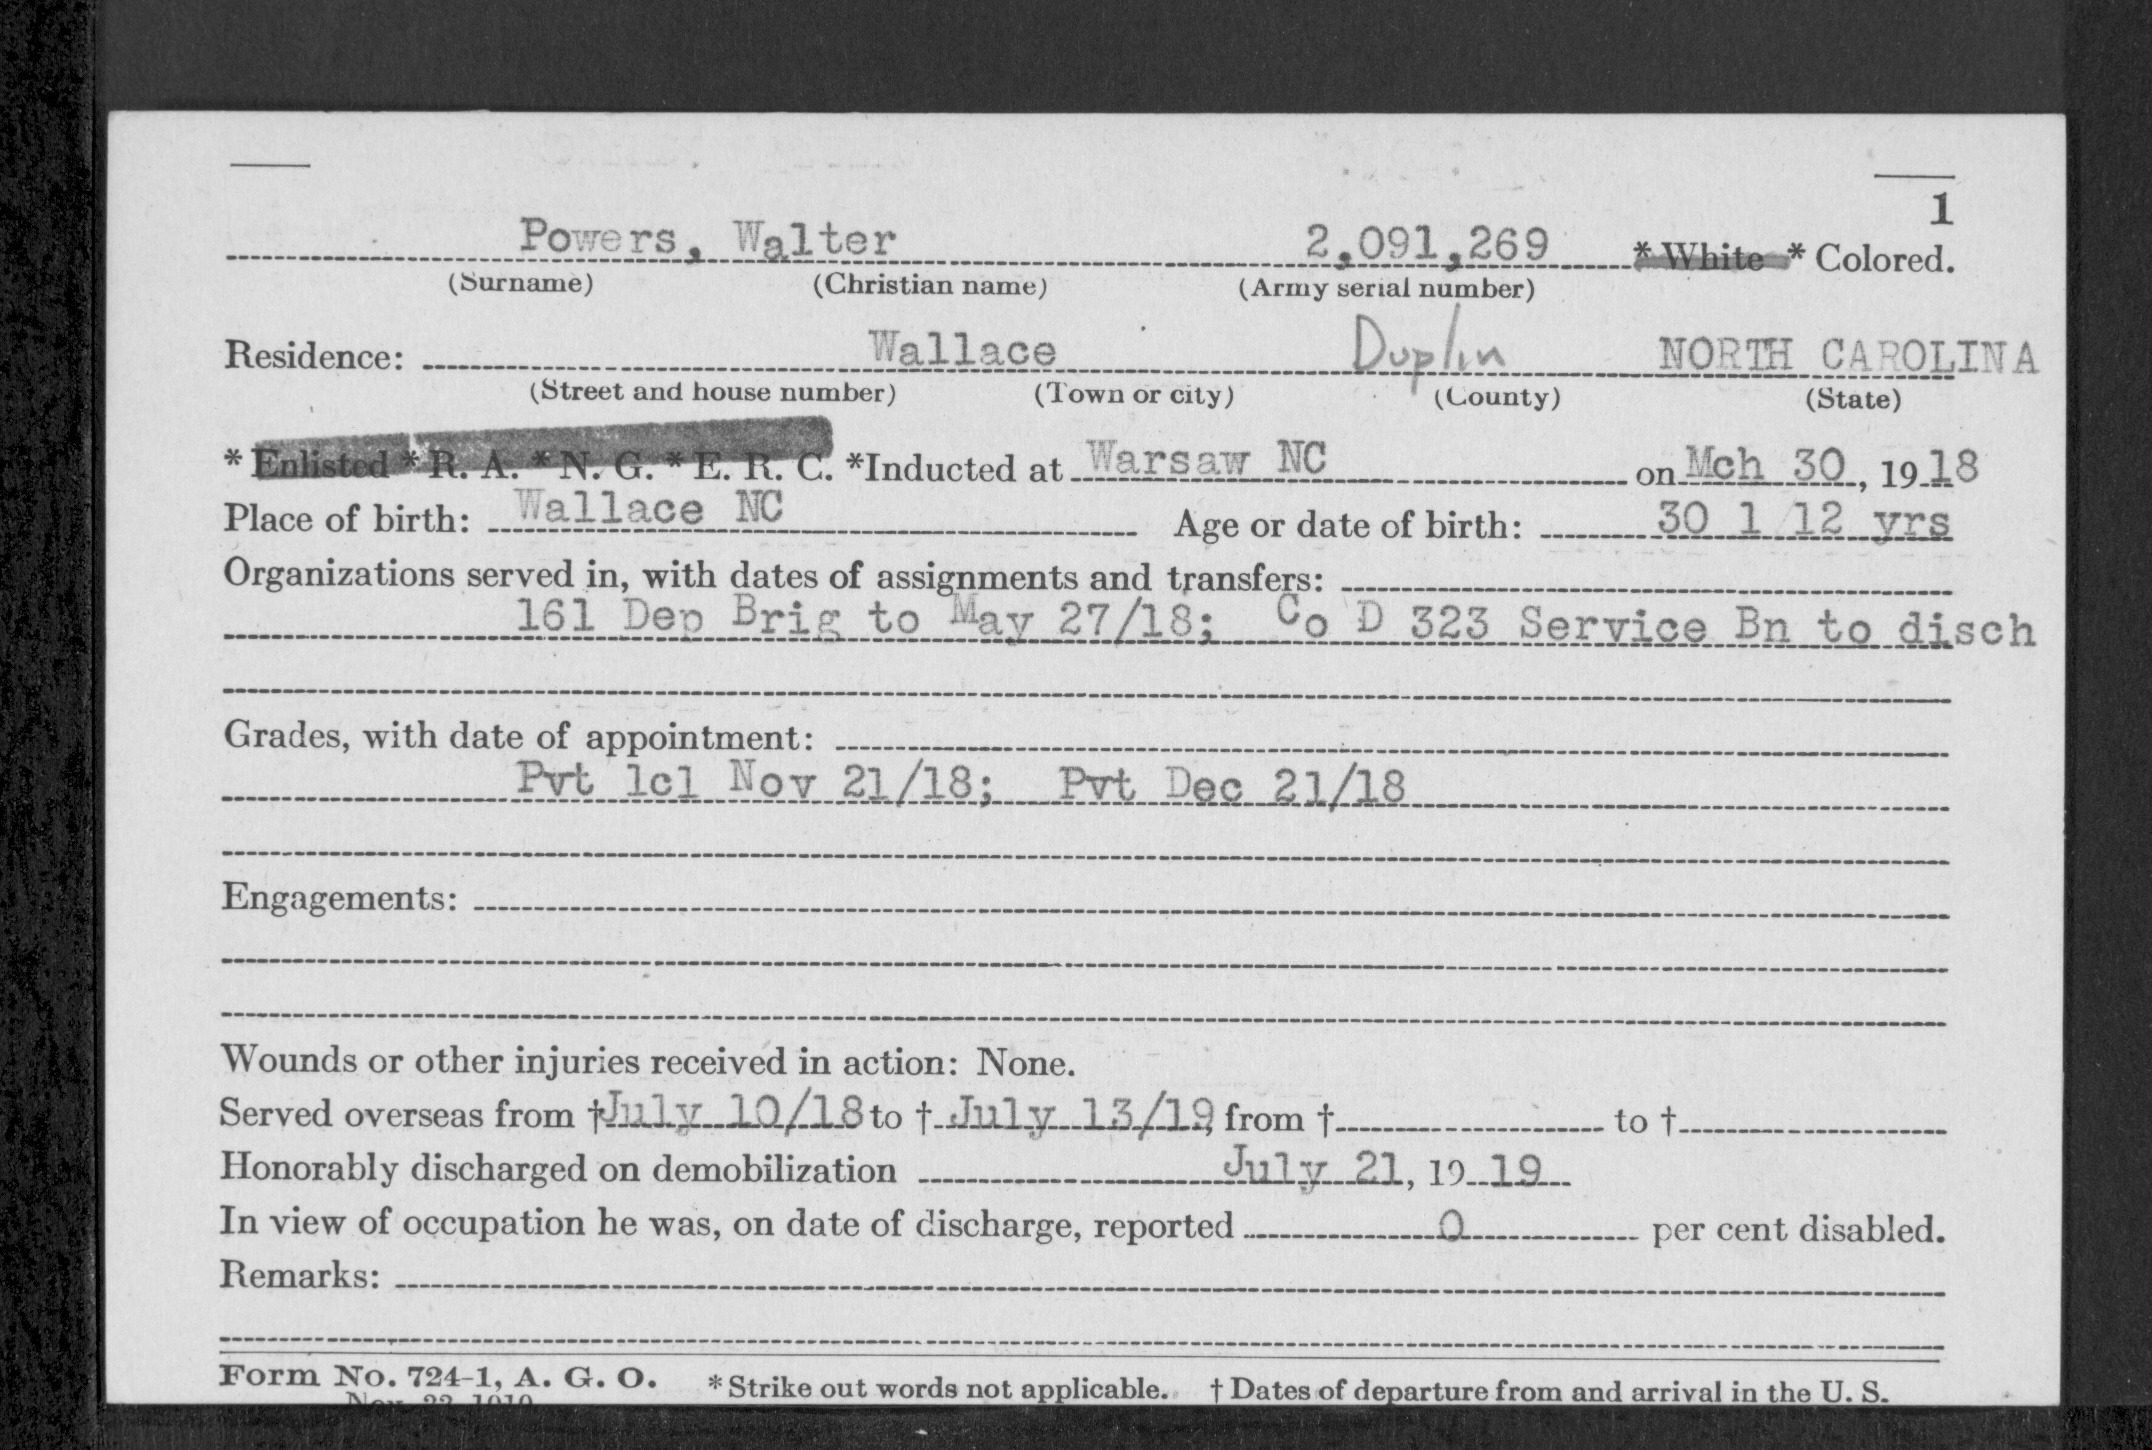 1
Powers, Walter 2,091,269 * White * Colored.
(Surname) (Christian name) (Army serial number)
Residence: Wallace Duplin NORTH CAROLINA
(Street and house number) (Town or city) (County) (State)
* Enlisted * R. A. * N. G. * E. R. C. *Inducted at Warsaw NC on Mch 30, 1918
Place of birth: Wallace NC Age or date of birth: 30 1 12 yrs
Organizations served in, with dates of assignments and transfers:
161 Dep Brig to May 27/18; Co D 323 Service Bn to disch
Grades, with date of appointment:
Pvt 1cl Nov 21/18; Pvt Dec 21/18
Engagements:
Wounds or other injuries received in action: None.
Served overseas from † July 10/18 to † July 13/19, from † to †
Honorably discharged on demobilization July 21, 1919
In view of occupation he was, on date of discharge, reported 0 per cent disabled.
Remarks:
Form No. 724-1, A. G. O. * Strike out words not applicable. † Dates of departure from and arrival in the U. S.
Nov. 22 1919